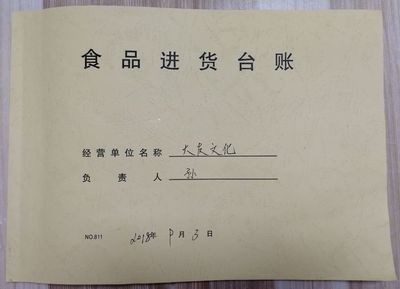 食品进货台账
经营单位名称 大友文化
负责人 孙
NO.811
2018年 9月 3日